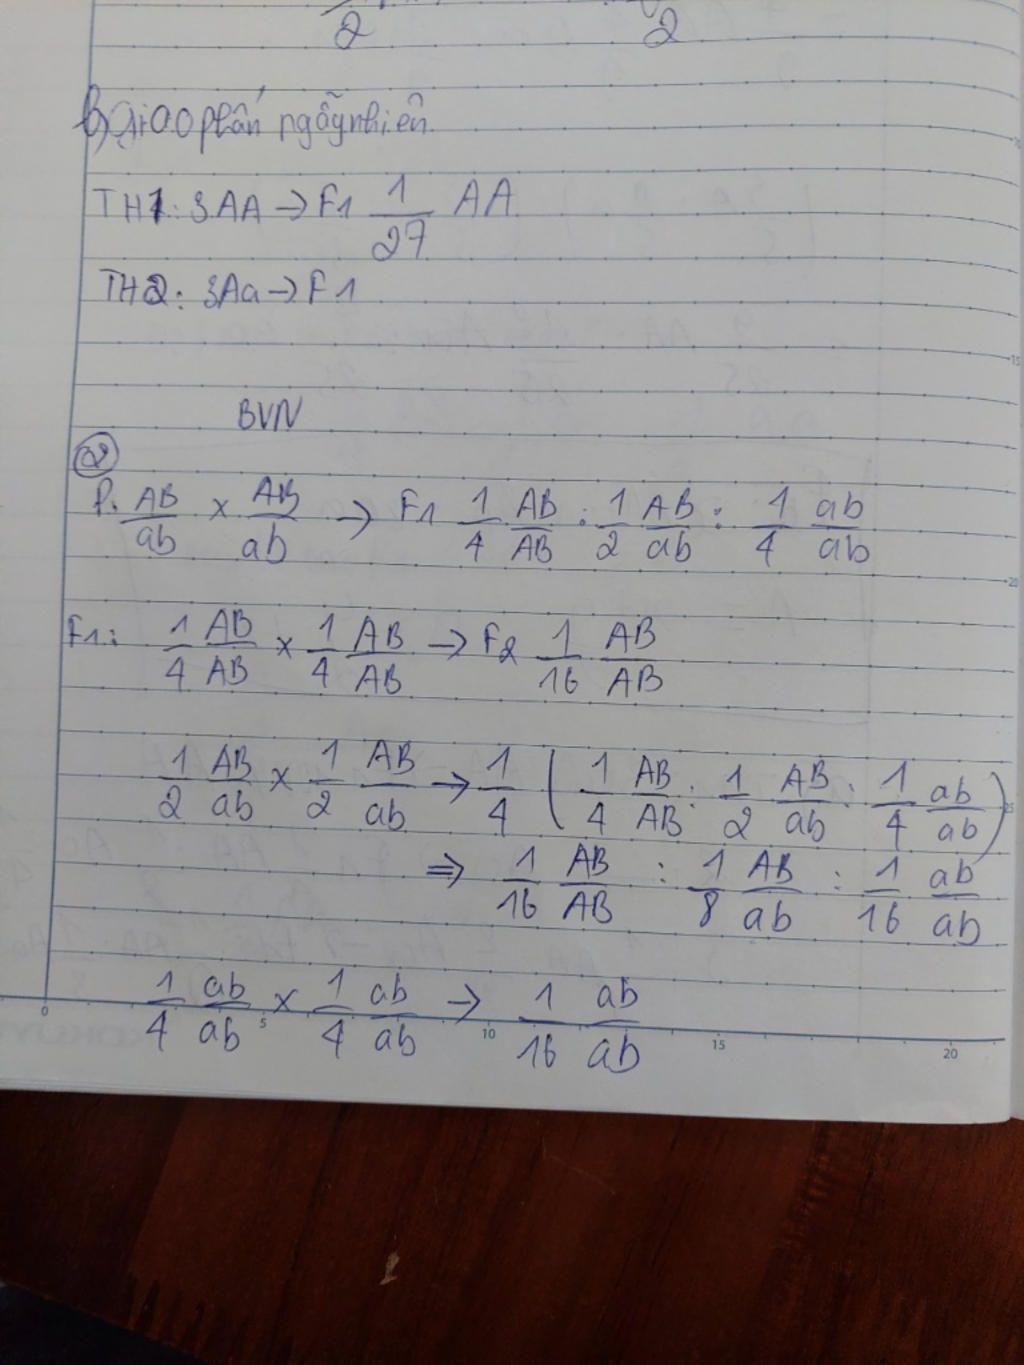 2 2
b) Giao phấn ngẫu nhiên.
TH1: 3AA → F1 1/27 AA
TH2: 3Aa → F1
BVN
2
P: AB/ab × AB/ab → F1 1/4 AB/AB : 1/2 AB/ab : 1/4 ab/ab
F1: 1/4 AB/AB × 1/4 AB/AB → F2 1/16 AB/AB
1/2 AB/ab × 1/2 AB/ab → 1/4 ( 1/4 AB/AB : 1/2 AB/ab : 1/4 ab/ab )
⇒ 1/16 AB/AB : 1/8 AB/ab : 1/16 ab/ab
1/4 ab/ab × 1/4 ab/ab → 1/16 ab/ab
0 5 10 15 20